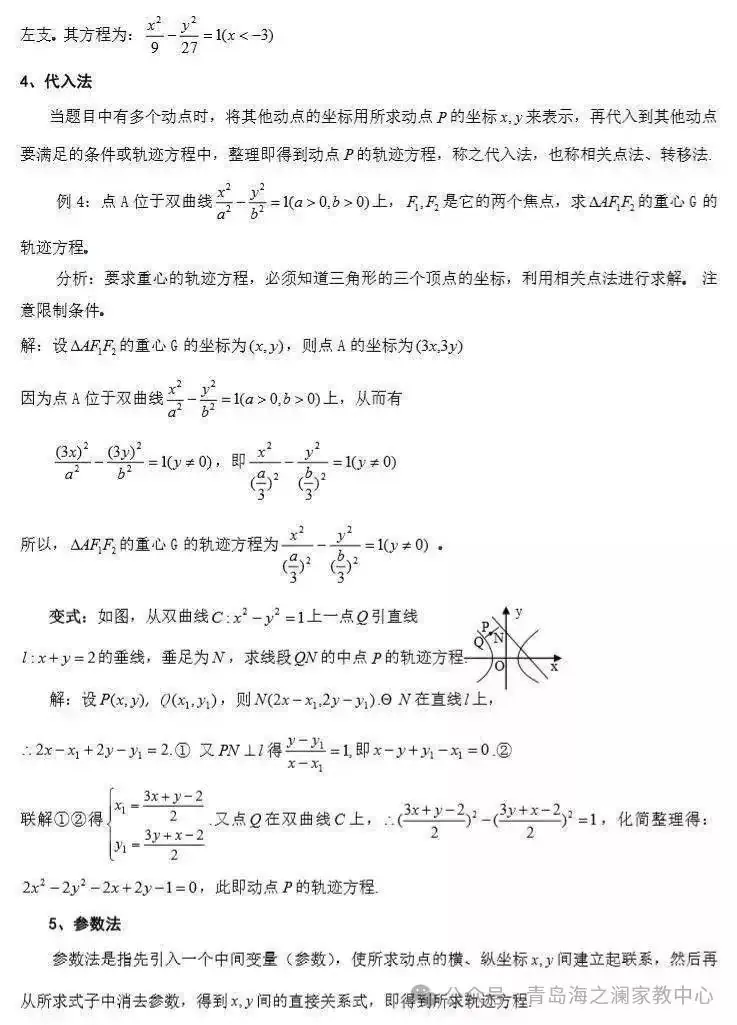 左支。其方程为：x²/9 − y²/27 = 1(x < −3)
4、代入法
当题目中有多个动点时，将其他动点的坐标用所求动点 P 的坐标 x, y 来表示，再代入到其他动点
要满足的条件或轨迹方程中，整理即得到动点 P 的轨迹方程，称之代入法，也称相关点法、转移法.
例 4：点 A 位于双曲线 x²/a² − y²/b² = 1(a > 0, b > 0) 上，F₁, F₂ 是它的两个焦点，求 ΔAF₁F₂ 的重心 G 的
轨迹方程。
分析：要求重心的轨迹方程，必须知道三角形的三个顶点的坐标，利用相关点法进行求解。 注
意限制条件。
解：设 ΔAF₁F₂ 的重心 G 的坐标为 (x, y)，则点 A 的坐标为 (3x,3y)
因为点 A 位于双曲线 x²/a² − y²/b² = 1(a > 0, b > 0) 上，从而有
(3x)²/a² − (3y)²/b² = 1(y ≠ 0)，即 x²/(a/3)² − y²/(b/3)² = 1(y ≠ 0)
所以，ΔAF₁F₂ 的重心 G 的轨迹方程为 x²/(a/3)² − y²/(b/3)² = 1(y ≠ 0) 。
变式：如图，从双曲线 C : x² − y² = 1 上一点 Q 引直线
l : x + y = 2 的垂线，垂足为 N，求线段 QN 的中点 P 的轨迹方程.
y
P
Q N
O x
解：设 P(x, y)，Q(x₁, y₁)，则 N(2x − x₁,2y − y₁).Θ N 在直线 l 上，
∴ 2x − x₁ + 2y − y₁ = 2.① 又 PN ⊥ l 得 (y − y₁)/(x − x₁) = 1, 即 x − y + y₁ − x₁ = 0.②
联解①②得 { x₁ = (3x + y − 2)/2
y₁ = (3y + x − 2)/2 .又点 Q 在双曲线 C 上，∴ ((3x + y − 2)/2)² − ((3y + x − 2)/2)² = 1，化简整理得：
2x² − 2y² − 2x + 2y − 1 = 0，此即动点 P 的轨迹方程.
5、参数法
参数法是指先引入一个中间变量（参数），使所求动点的横、纵坐标 x, y 间建立起联系，然后再
从所求式子中消去参数，得到 x, y 间的直接关系式，即得到所求轨迹方程.
公众号 · 青岛海之澜家教中心